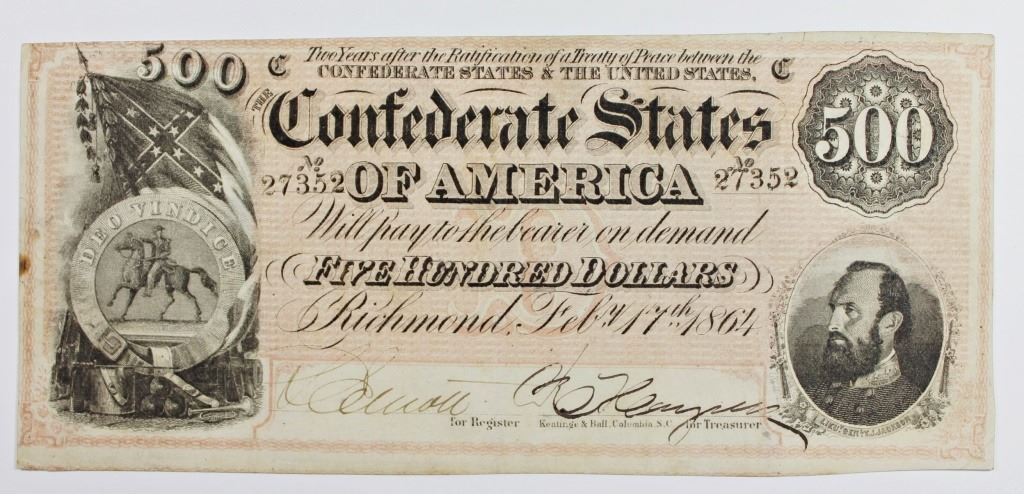 500 C Two Years after the Ratification of a Treaty of Peace between the C
CONFEDERATE STATES & THE UNITED STATES,
THE Confederate States 500
No 27352 OF AMERICA No 27352
DEO VINDICE
Will pay to the bearer on demand
FIVE HUNDRED DOLLARS
Richmond, Feby. 17th. 1864
for Register Keatinge & Ball, Columbia, S.C. for Treasurer
LIEUT. GEN. T.J. JACKSON